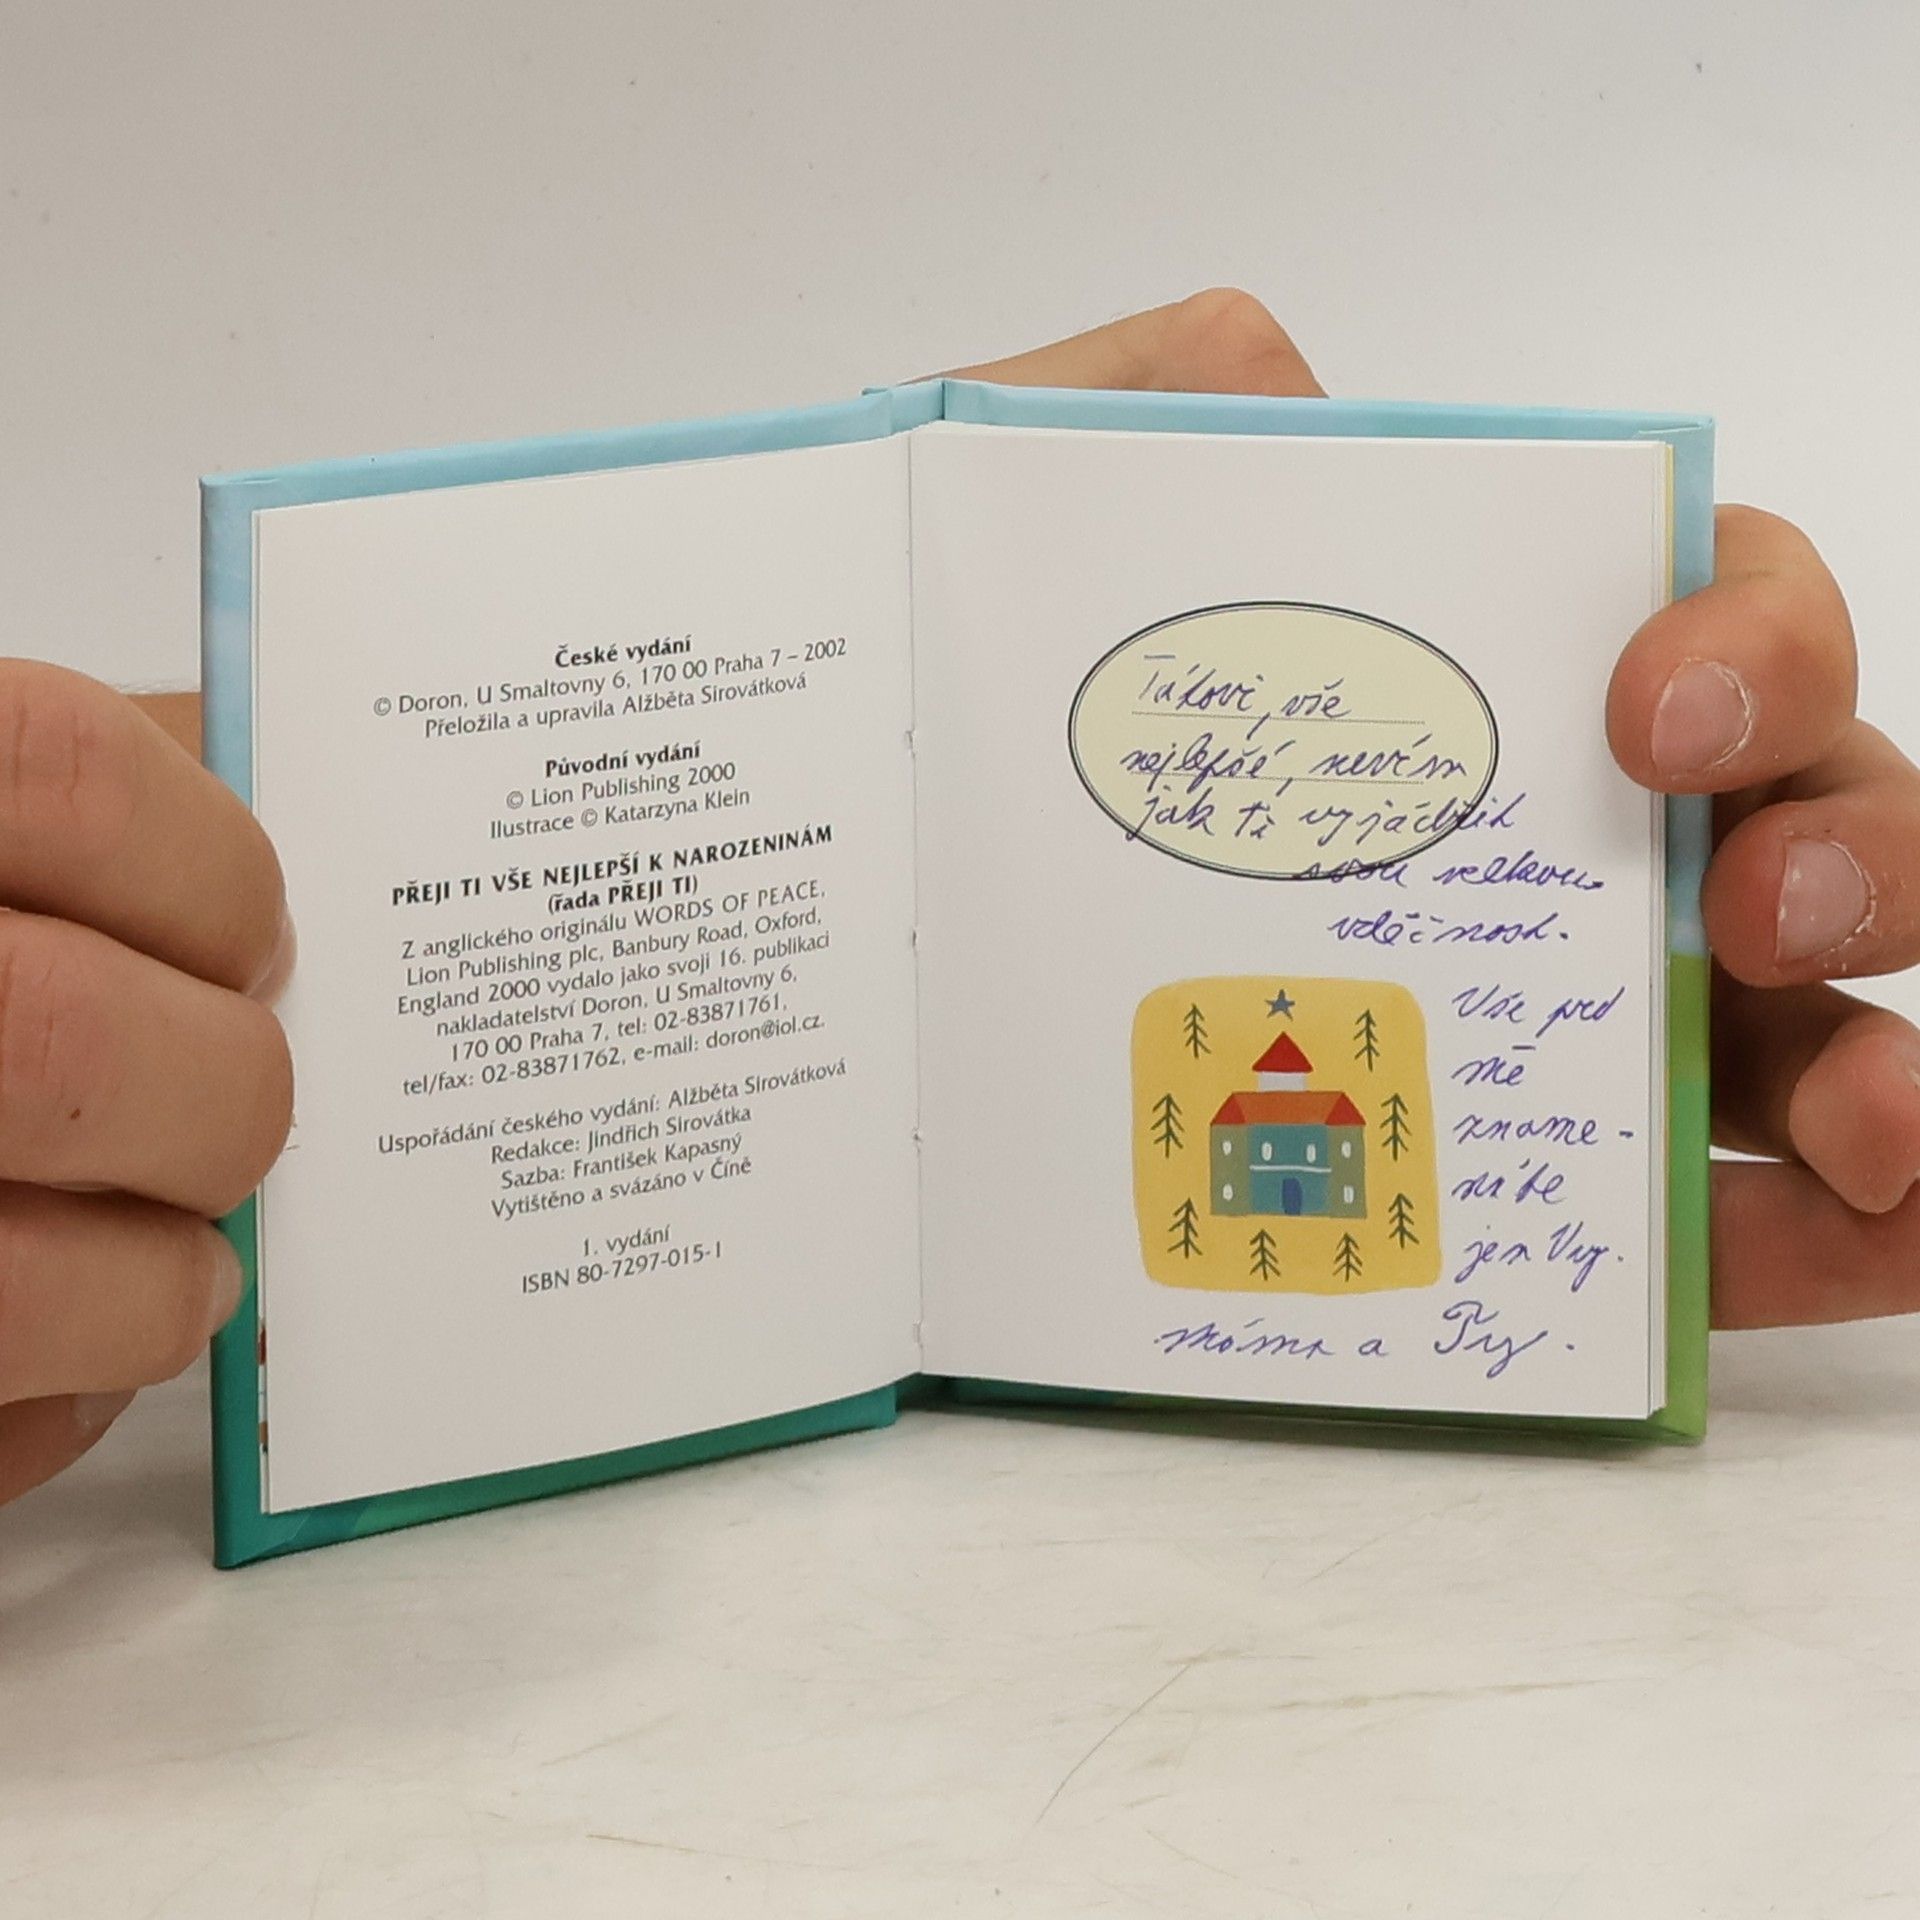 České vydání
© Doron, U Smaltovny 6, 170 00 Praha 7 – 2002
Přeložila a upravila Alžběta Sirovátková
Původní vydání
© Lion Publishing 2000
Ilustrace © Katarzyna Klein
PŘEJI TI VŠE NEJLEPŠÍ K NAROZENINÁM
(řada PŘEJI TI)
Z anglického originálu WORDS OF PEACE,
Lion Publishing plc, Banbury Road, Oxford,
England 2000 vydalo jako svoji 16. publikaci
nakladatelství Doron, U Smaltovny 6,
170 00 Praha 7, tel: 02-83871761,
tel/fax: 02-83871762, e-mail: doron@iol.cz.
Uspořádání českého vydání: Alžběta Sirovátková
Redakce: Jindřich Sirovátka
Sazba: František Kapasný
Vytištěno a svázáno v Číně
1. vydání
ISBN 80-7297-015-1
Tátovi, vše
nejlepší, nevím
jak ti vyjádřit
svou velkou
vděčnost.
Vše pro
mě
zname-
náte
jen Vy.
máma a Ty.